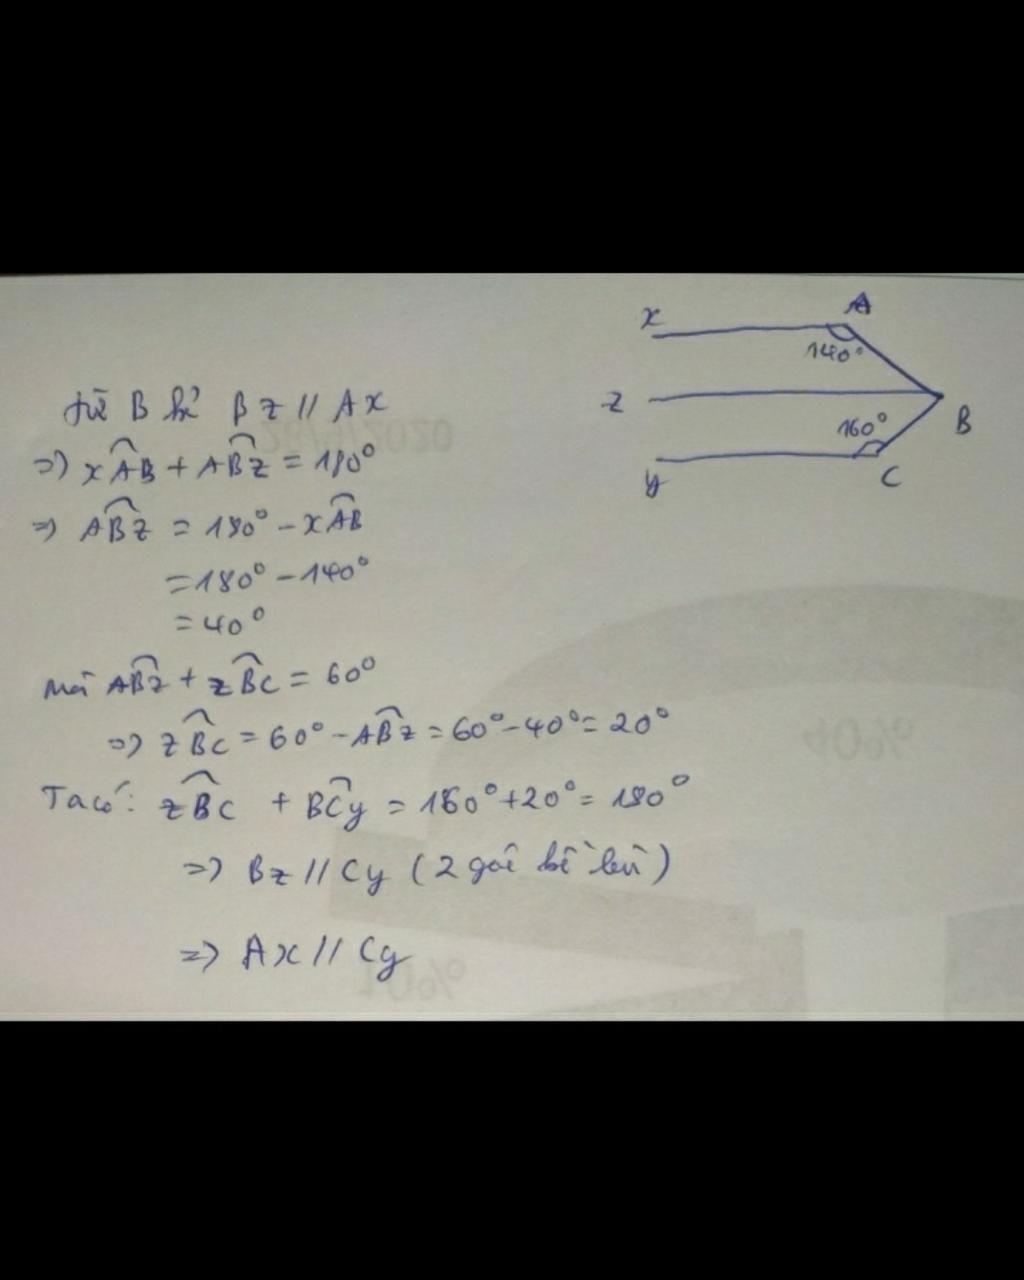 x A
140°
z
B
160°
y C
từ B kẻ Bz // Ax
=> xAB + ABz = 180°
=> ABz = 180° - xAB
= 180° - 140°
= 40°
mà ABz + zBC = 60°
=> zBC = 60° - ABz = 60° - 40° = 20°
Ta có: zBC + BCy = 160° + 20° = 180°
=> Bz // Cy (2 góc bù)
=> Ax // Cy